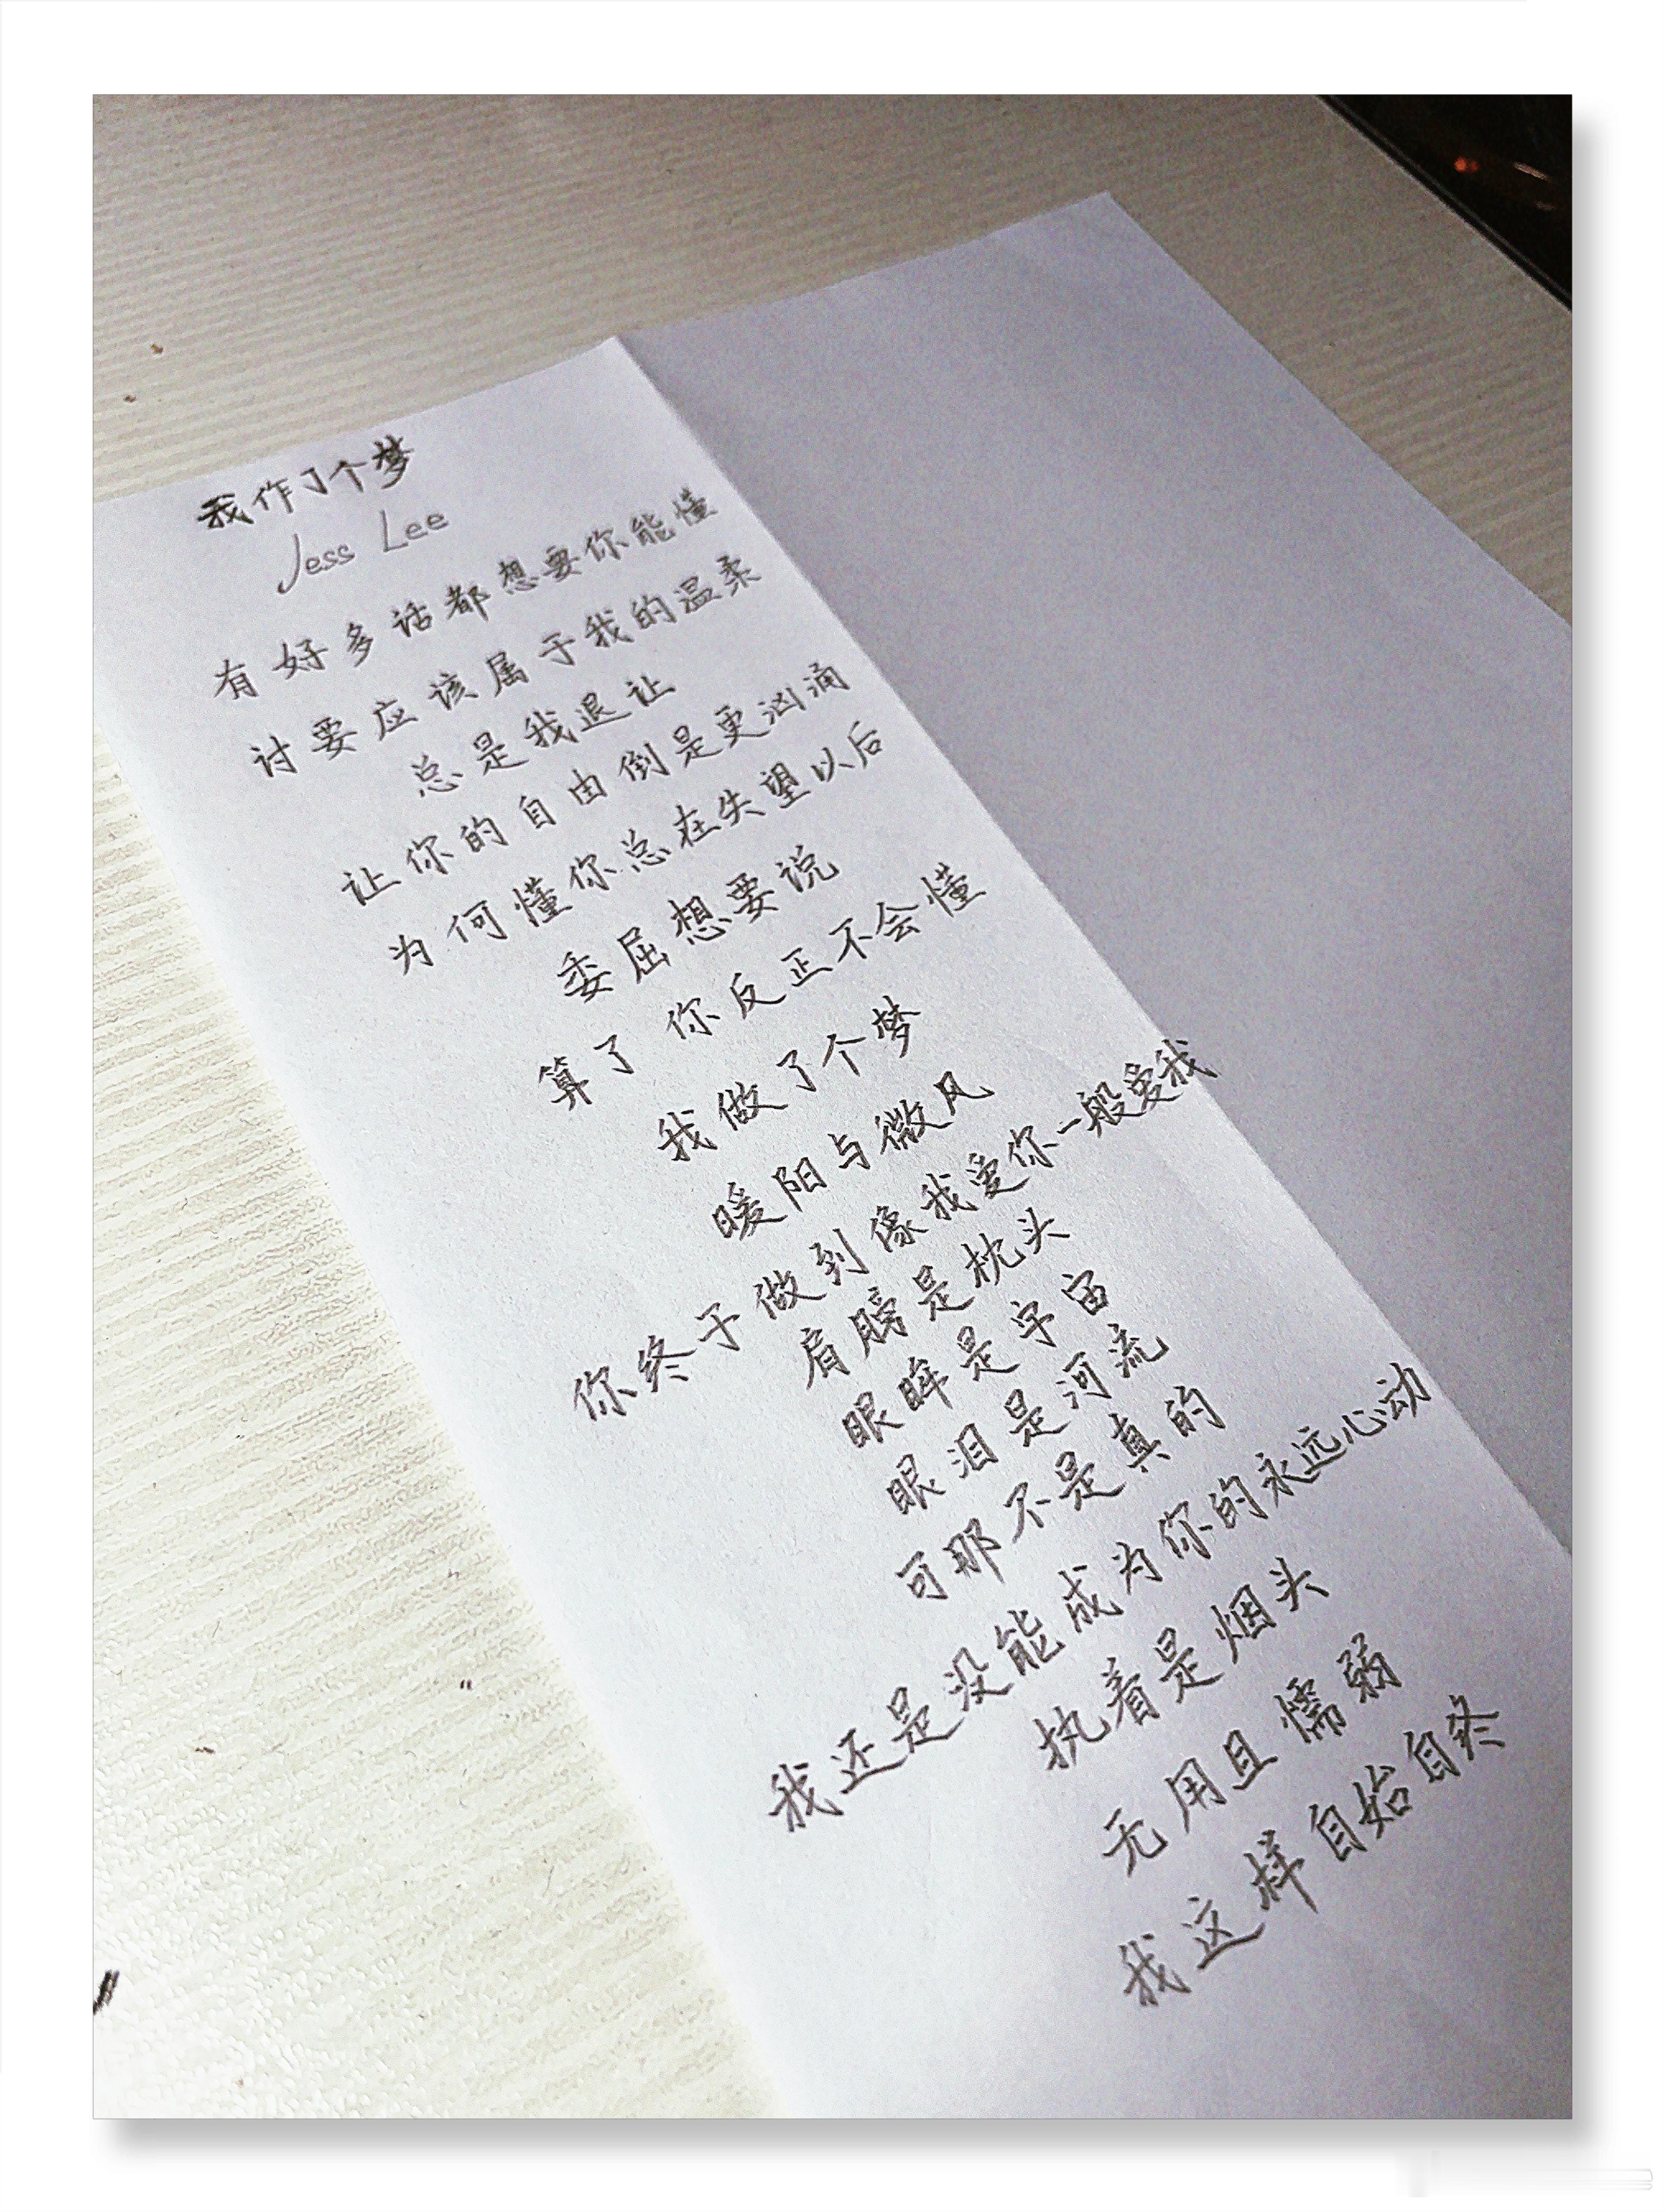 我作了个梦
Jess Lee
有好多话都想要你能懂
讨要应该属于我的温柔
总是我退让
让你的自由倒是更汹涌
为何懂你总在失望以后
委屈想要说
算了 你反正不会懂
我做了个梦
暖阳与微风
你终于做到像我爱你一般爱我
肩膀是枕头
眼眸是宇宙
眼泪是河流
可那不是真的
我还是没能成为你的永远心动
执着是烟头
无用且懦弱
我这样自始自终